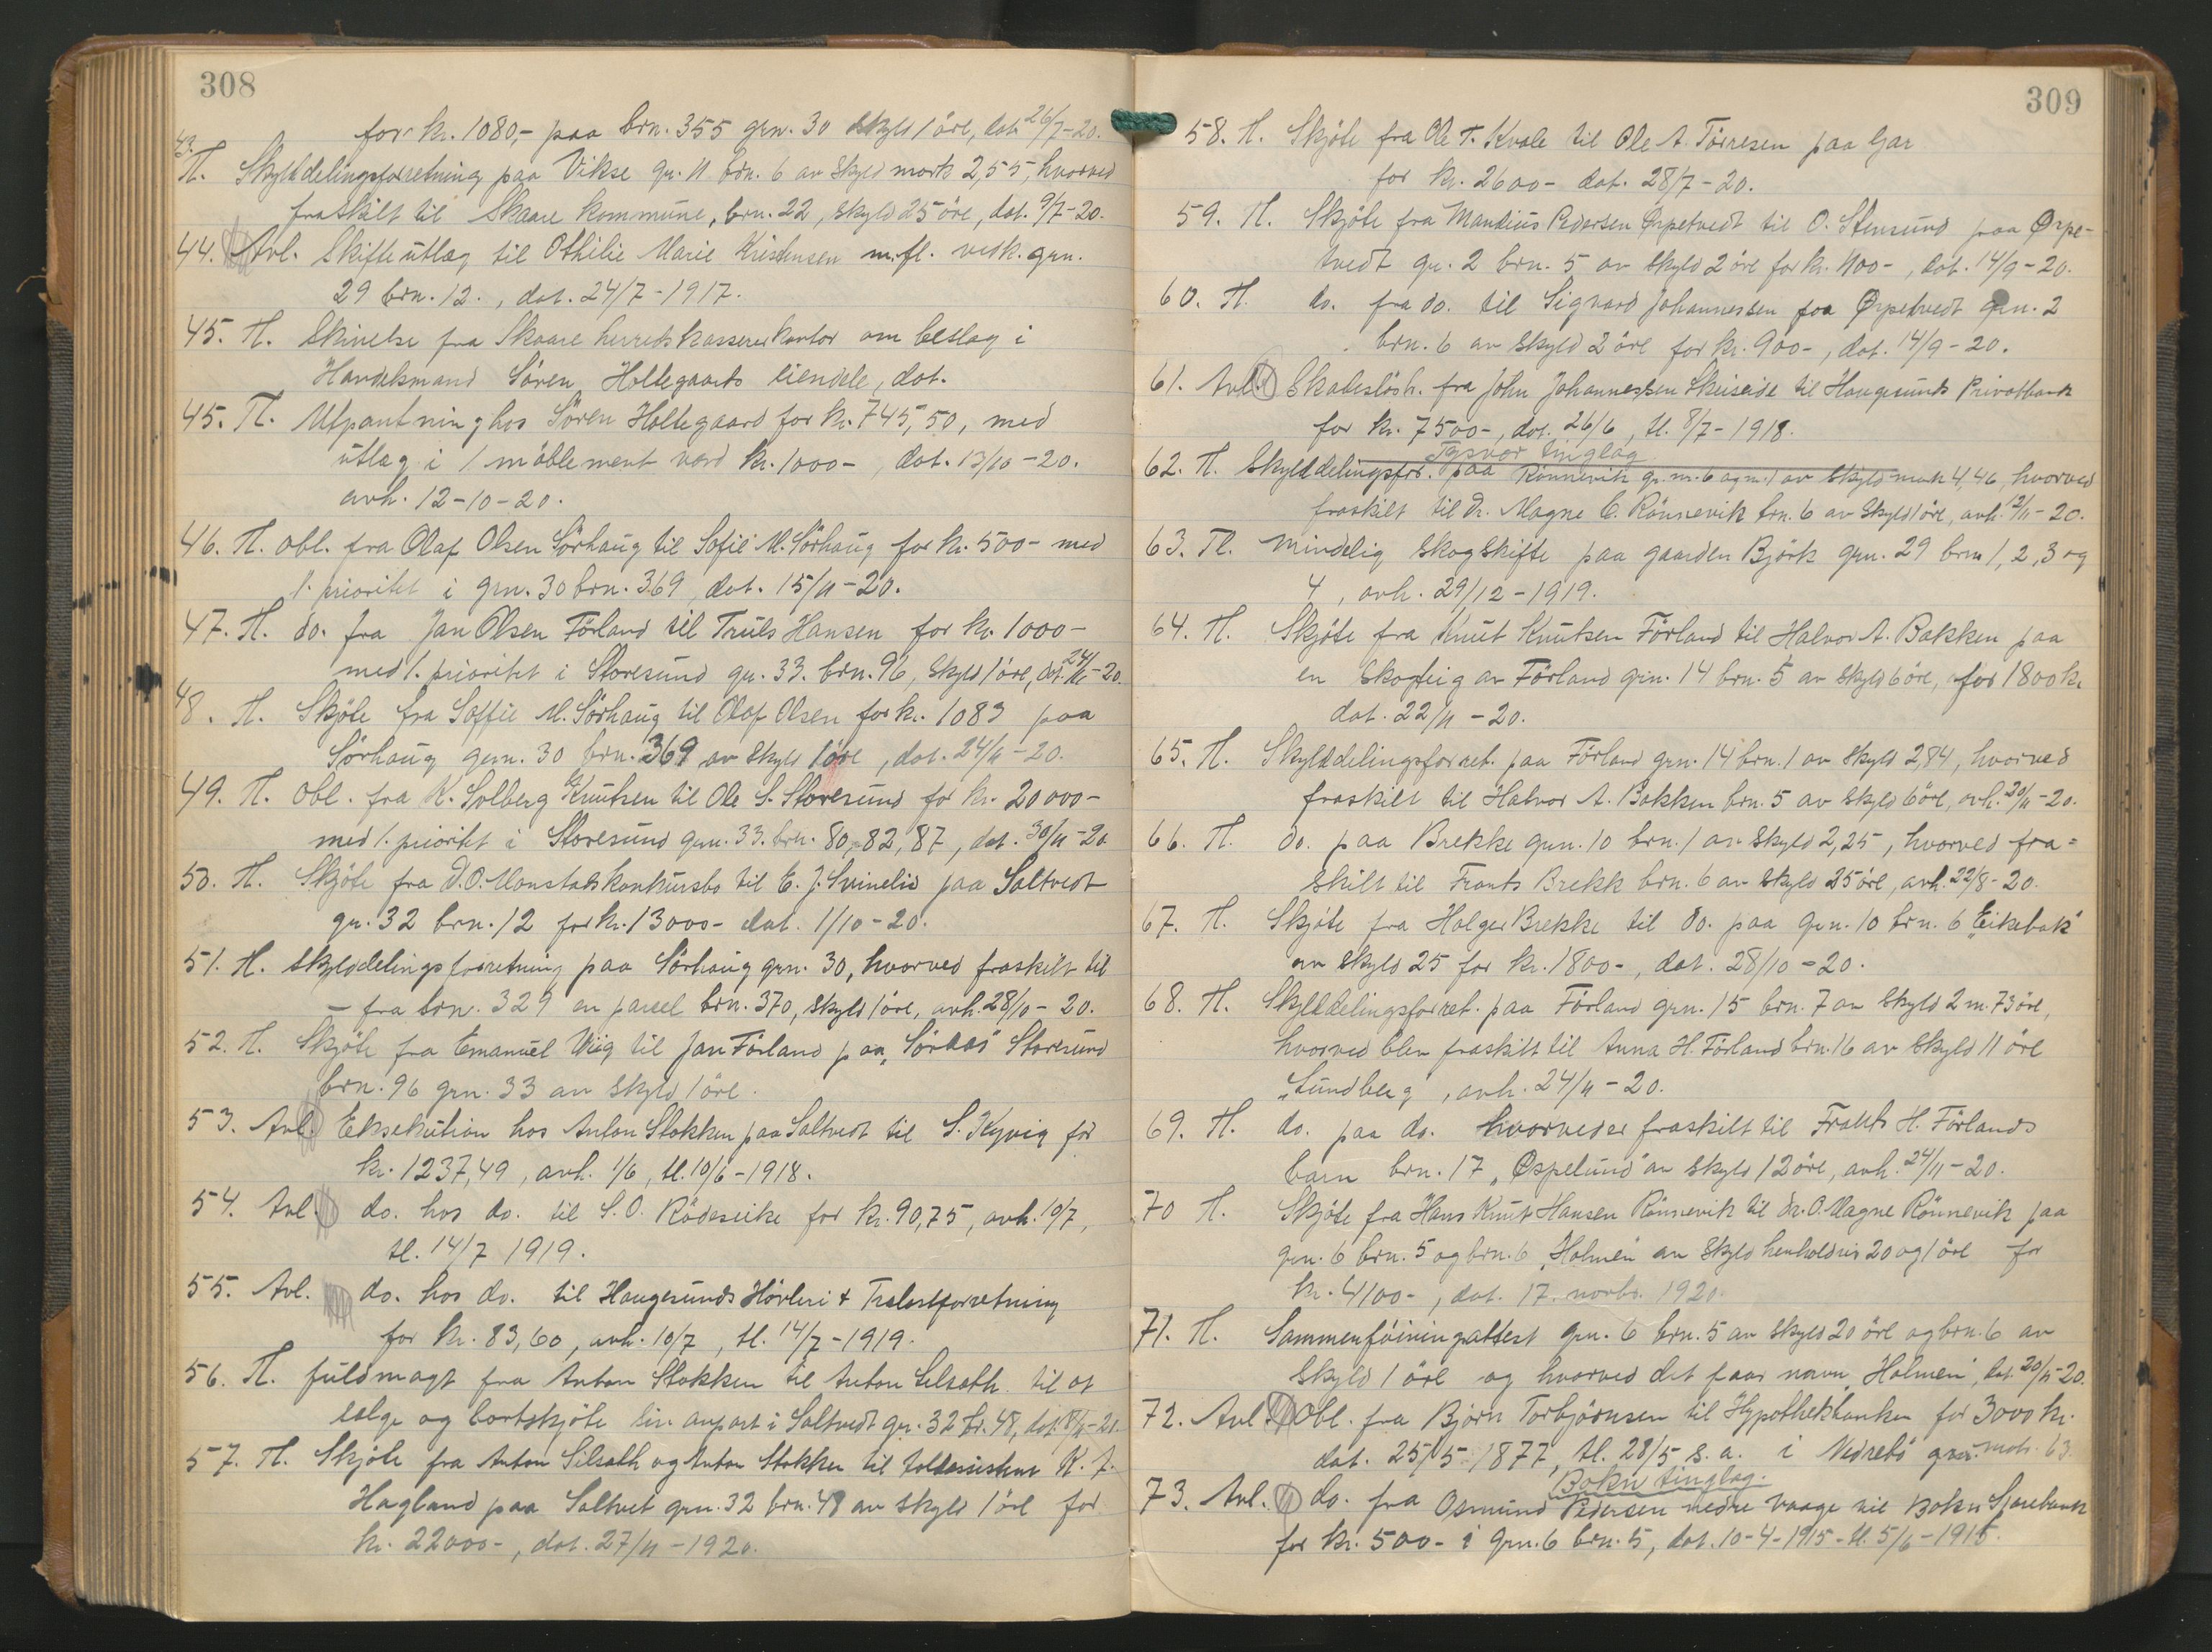 308
for kr. 1080,- paa brn. 355 grn. 30 skyld 1 öre, dat. 26/7-20.
43. Tl. Skylddelingsforretning paa Vikse gr. 11 brn. 6 av skyld mark 2,55, hvorved
fraskilt til Skaare kommune, brn. 22, skyld 25 öre, dat. 9/7-20.
44. Avl. Skifteutlæg til Othilie Marie Kristensen m.fl. vedk. grn.
29 brn. 12., dat. 24/7-1917.
45. Tl. Skrivelse fra Skaare herredskassererkontor om beslag i
Handelsmand Sören Holtegaards eiendele, dat.
45. Tl. Utpantning hos Sören Holtegaard for kr. 745,50, med
utlæg i 1 möblement værd kr. 1000-, dat. 13/10-20.
avh. 12-10-20.
46. Tl. obl. fra Olaf Olsen Sörhaug til Sofie M. Sörhaug for kr. 500- med
1. prioritet i grn. 30 brn. 369, dat. 15/11-20.
47. Tl. do. fra Jan Olsen Förland til Truls Hansen for kr. 1000-
med 1. prioritet i Storesund gr. 33. brn. 96, skyld 1 öre, dat. 24/11-20.
48. Tl. Skjöte fra Soffie M. Sörhaug til Olaf Olsen for kr. 1083 paa
Sörhaug grn. 30 brn. 369 av skyld 1 öre, dat. 24/11-20.
49. Tl. obl. fra K. Solberg Knutsen til Ole S. Storesund for kr. 20000-
med 1. prioritet i Storesund grn. 33. brn. 80, 82, 87, dat. 30/11-20
50. Tl. Skjöte fra D.O. Monstads konkursbo til E. J. Svinelid paa Saltvedt
gr. 32 brn. 12 for kr. 13000- dat. 1/10-20.
51. Tl. skylddelingsforretning paa Sörhaug grn. 30, hvorved fraskilt til
- fra brn. 329 en parcel brn. 370, skyld 1 öre, avh. 28/10-20.
52. Tl. Skjöte fra Emanuel Vüg til Jan Förland paa "Söraas" Storesund
brn. 96 grn. 33 av skyld 1 öre.
53. Avl. Eksekution hos Anton Stokken paa Saltvedt til S. Kyvig for
kr. 1237,49, avh. 1/6, tl. 10/6-1918.
54. Avl. do. hos do. til S.O. Rödseike for kr. 90,75, avh. 10/7,
tl. 14/7 1919.
55. Avl. do. hos do. til Haugesunds Hövleri & Trælastforretning
for kr. 83,60, avh. 10/7, tl. 14/7-1919.
56. Tl. fuldmagt fra Anton Stokken til Anton Silseth til at
sælge og bortskjöte sin anpart i Saltvedt gr. 32 br. 48, dat.
57. Tl. Skjöte fra Anton Silseth og Anton Stokken til toldassistent K. J.
Hagland paa Saltvet grn. 32 brn. 48 av skyld 1 öre for
kr. 22000-, dat. 27/11-1920.
309
58. Tl. Skjöte fra Ole T. Kvale til Ole A. Törresen paa Gar
for kr. 2600- dat. 28/7-20.
59. Tl. Skjöte fra Mandius Pedersen Ørpetvedt til O. Stensund paa Ørpe-
tvedt gr. 2 brn. 5 av skyld 2 öre for kr. 1100-, dat. 14/9-20.
60. Tl. do. fra do. til Sigvard Johannessen paa Ørpetvedt grn. 2
brn. 6 av skyld 2 öre for kr. 900-, dat. 14/9-20.
61. Avl. Skadeslösh. fra John Johannessen Skeiseide til Haugesunds Privatbank
for kr. 7500-, dat. 26/6, tl. 8/7-1918.
Tysvær tinglag
62. Tl. Skylddelingsfor. paa Rönnevik gr. nr. 6 og nr. 1 av skyld mark 4,46, hvorved
fraskilt til Dr. Magne C. Rönnevik brn. 6 av skyld 1 öre, avh. 12/11-20.
63. Tl. mindelig skogskifte paa gaarden Björk grn. 29 brn 1, 2, 3 og
4, avh. 29/12-1919.
64. Tl. Skjöte fra Knut Knutsen Förland til Halvor A. Bakken paa
en skogteig av Förland grn. 14 brn. 5 av skyld 6 öre, for 1800 kr.
dat. 22/11-20.
65. Tl. Skylddelingsforret. paa Förland grn. 14 brn. 1 av skyld 2,84, hvorved
fraskilt til Halvor A. Bakken brn. 5 av skyld 6 öre, avh. 20/11-20.
66. Tl. do. paa Brekke grn. 10 brn. 1 av skyld 2,25, hvorved fra=
skilt til Frants Brekk brn. 6 av skyld 25 öre, avh. 22/8-20.
67. Tl. Skjöte fra Holger Brekke til do. paa grn. 10 brn. 6 "Eikebak"
av skyld 25 for kr. 1800-, dat. 28/10-20.
68. Tl. Skylddelingsforret. paa Förland grn. 15 brn. 7 av skyld 2 m. 73 öre,
hvorved blev fraskilt til Anna H. Förland brn. 16 av skyld 11 öre
"Lundberg", avh. 24/11-20.
69. Tl. do. paa do. hvorved er fraskilt til Frants H. Förlands
barn brn. 17 "Øspelund" av skyld 12 öre, avh. 24/11-20.
70 Tl. Skjöte fra Hans Knut Hansen Rönnevik til dr. O. Magne Rönnevik paa
grn. 6 brn. 5 og brn. 6 "Holmen" av skyld henholdsvis 20 og 1 öre for
kr. 4100-, dat. 17. novbr. 1920.
71. Tl. Sammenföiningsattest grn. 6 brn. 5 av skyld 20 öre og brn. 6 av
skyld 1 öre og hvorved det faar navn "Holmen", dat. 20/11-20.
72. Avl. Obl. fra Björn Torbjörnsen til Hypothekbanken for 3000 kr.
dat. 25/5 1877, tl. 28/5 s.a. i Nedrebö matr. 63
Bokn tinglag.
73. Avl. do. fra Osmund Pedersen nedre Vaage til Bokn Sparebank
for kr. 500- i grn. 6 brn. 5, dat. 10-4-1915-tl. 5/6-1915